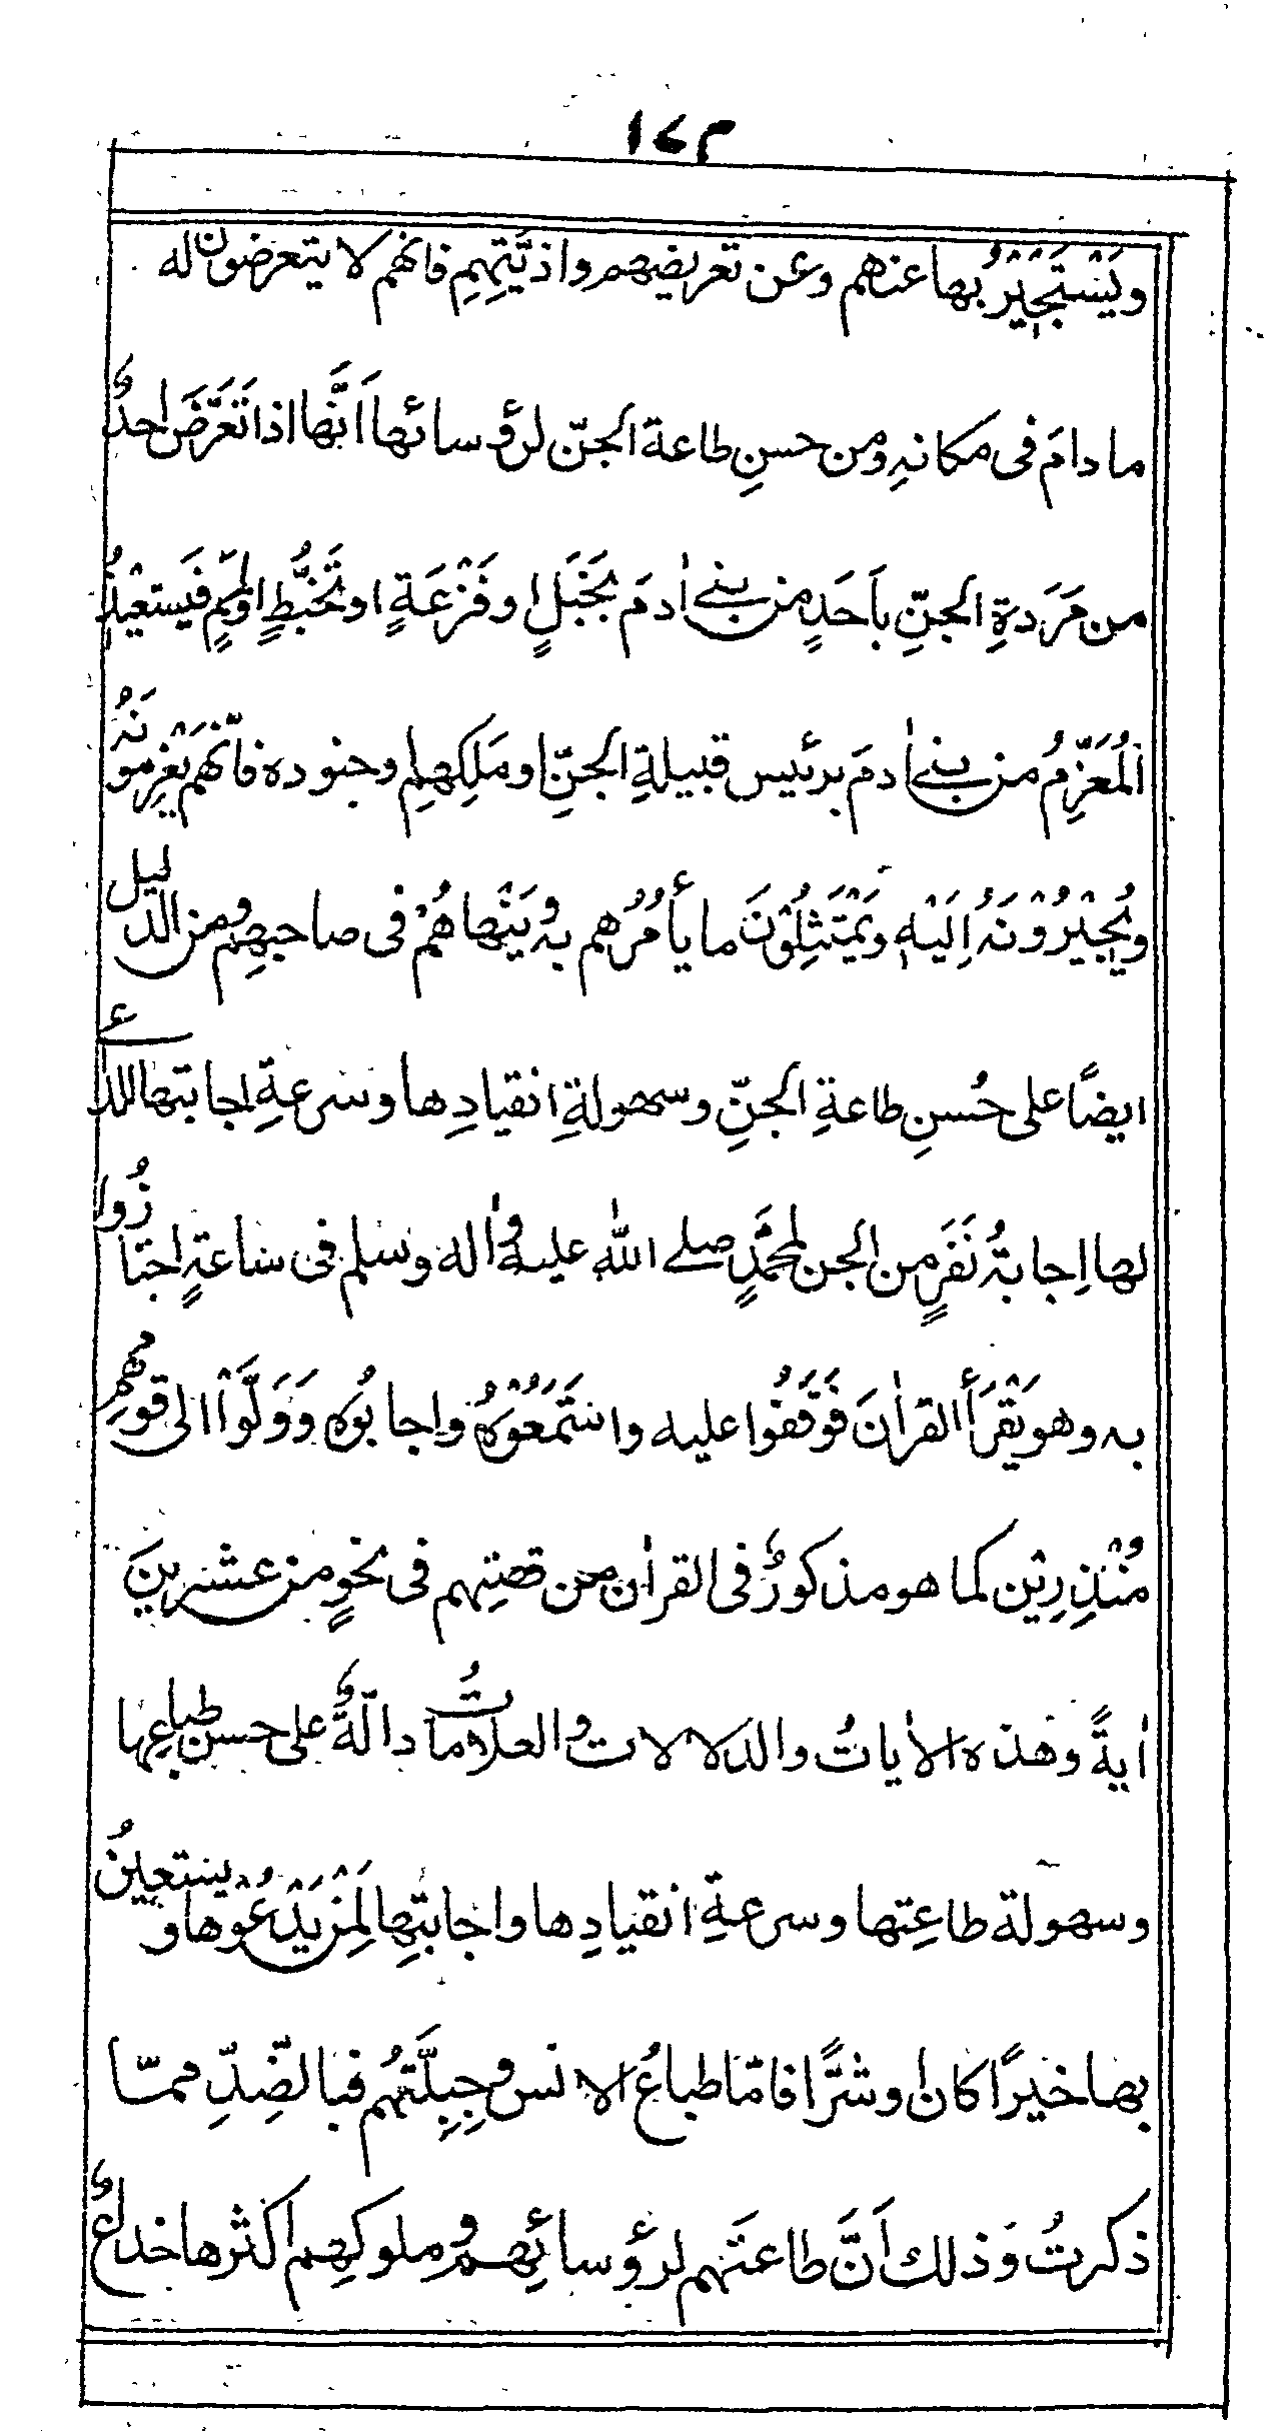 ١٧٣
ويَسْتَجِيْرُ بها عنهم وعن تعريضهم واذيَّتِهِم فانهم لا يتعرضون له
ما دامَ فى مكانهِ ومن حسنِ طاعة الجنّ لرؤسائها اَنَّها اذا تَعَرَّضَ احدٌ
من مَرَدةِ الجنِّ باَحَدٍ من بنى اٰدمَ بِخَبَلٍ او فَزْعَةٍ او تَخَبُّطٍ او لَمَمٍ فَيستعيذُ
اَلمُعَزِّمُ من بنى اٰدمَ برئيس قبيلةِ الجنِّ او مَلِكِهِم وجنوده فانّهم يَغْرِمُونَهُ
ويُجِيْرُوْنَهُ اِلَيْهِ ويَمْتَثِلُوْنَ ما يأمُرُهم به ويَنْهاهُمْ فى صاحبهم ومن الدليل
ايضًا على حُسنِ طاعةِ الجنِّ وسهولةِ انقيادِها وسرعةِ اجابتها للداعى
لها اِجابةُ نَفَرٍ من الجن لمحمَّدٍ صلى الله عليه واٰله وسلم فى ساعةٍ اجتازُوا
به وهو يَقْرَأُ القراٰنَ فَوَقَفُوا عليه واسْتَمَعُوْهُ واجابُوه وَوَلَّوْا الى قومِهِم
مُنْذِرِيْن كما هو مذكورٌ فى القراٰن من قصتِهم فى نحوٍ من عشرينَ
اٰيةً وهذه الاٰياتُ والدلالات والعلاماتُ دالّةٌ على حسن طباعِها
وسهولة طاعتِها وسرعةِ انقيادِها واجابتِها لِمَنْ يَدْعُوْها ويستعينُ
بها خيرًا كان او شرًّا فامّا طباعُ الانس وجِبِلَّتُهُم فبالضِدِّ ممّا
ذكرتُ وَذلك اَنَّ طاعتَهم لرؤسائِهم وملوكِهم اكثرها خداعٌ